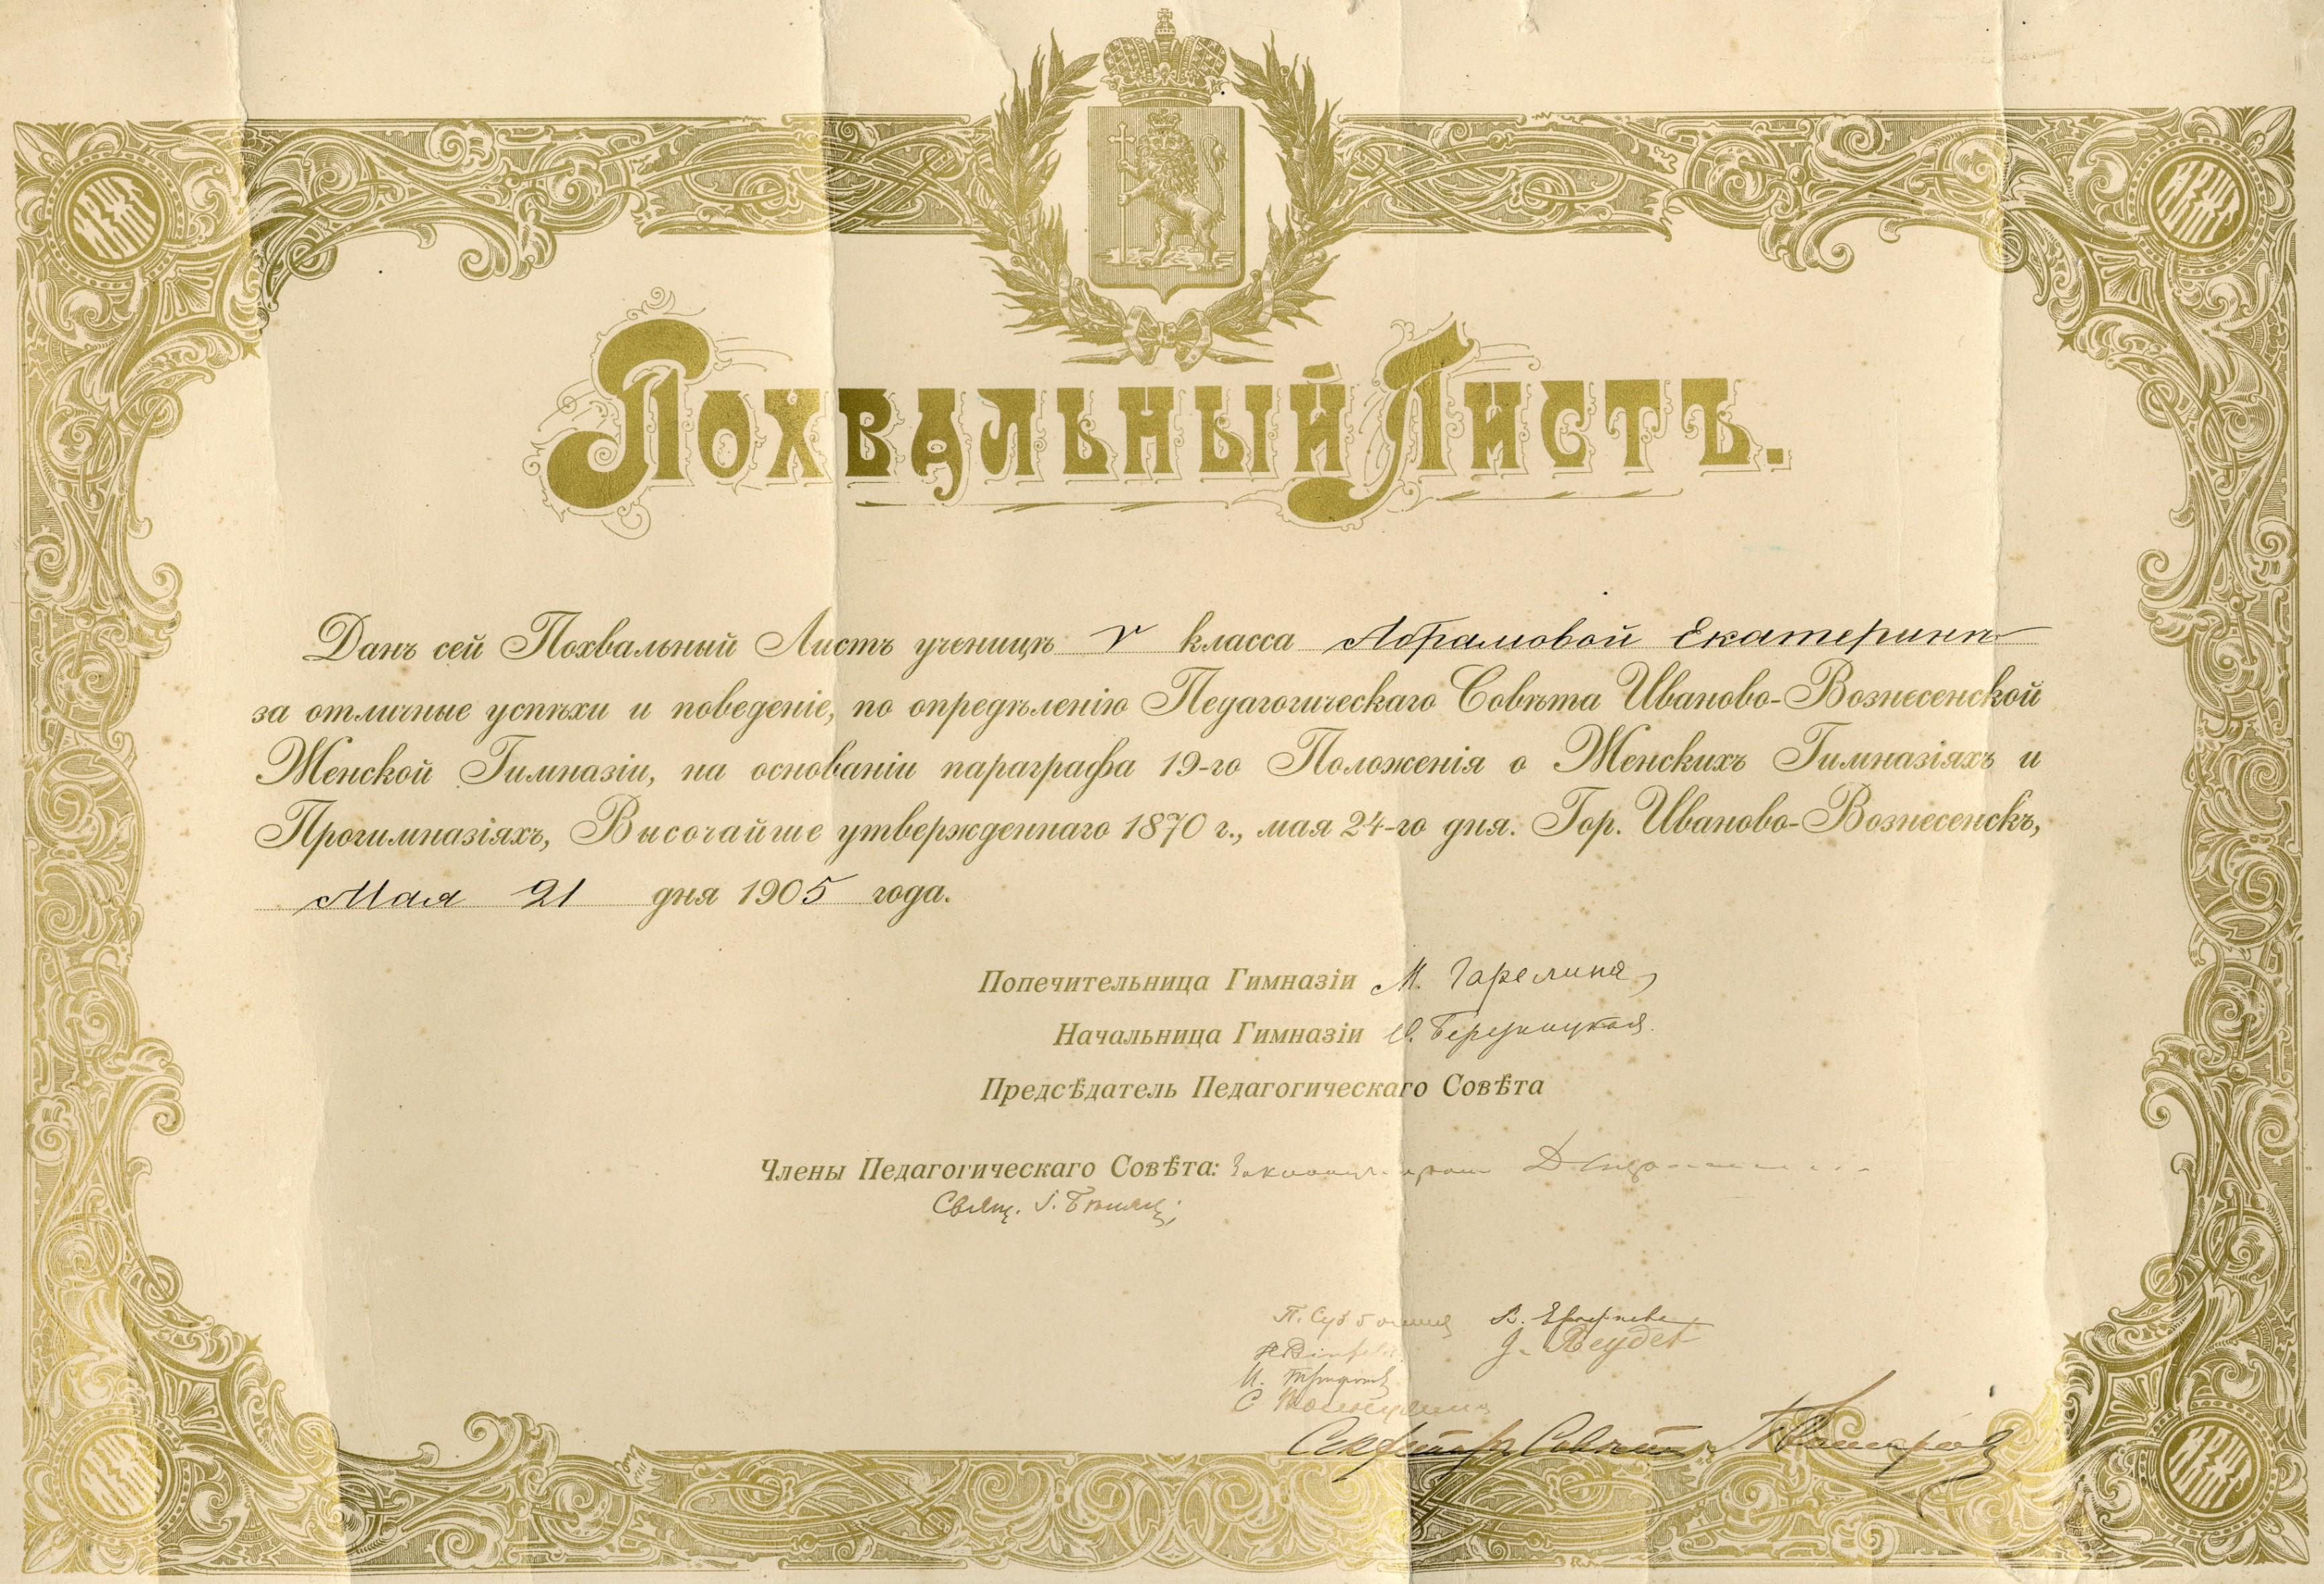 Похвальный Листъ.
Данъ сей Похвальный Листъ ученицѣ V класса Абрамовой Екатеринѣ
за отличные успѣхи и поведеніе, по опредѣленію Педагогическаго Совѣта Иваново-Вознесенской
Женской Гимназіи, на основаніи параграфа 19-го Положенія о Женскихъ Гимназіяхъ и
Прогимназіяхъ, Высочайше утвержденнаго 1870 г., мая 24-го дня. Гор. Иваново-Вознесенскъ,
Мая 21 дня 1905 года.
Попечительница Гимназіи М. Гарелина
Начальница Гимназіи
Предсѣдатель Педагогическаго Совѣта
Члены Педагогическаго Совѣта:
Свящ. І.
П. Субботина В.
И.
С
Секретарь Совѣта